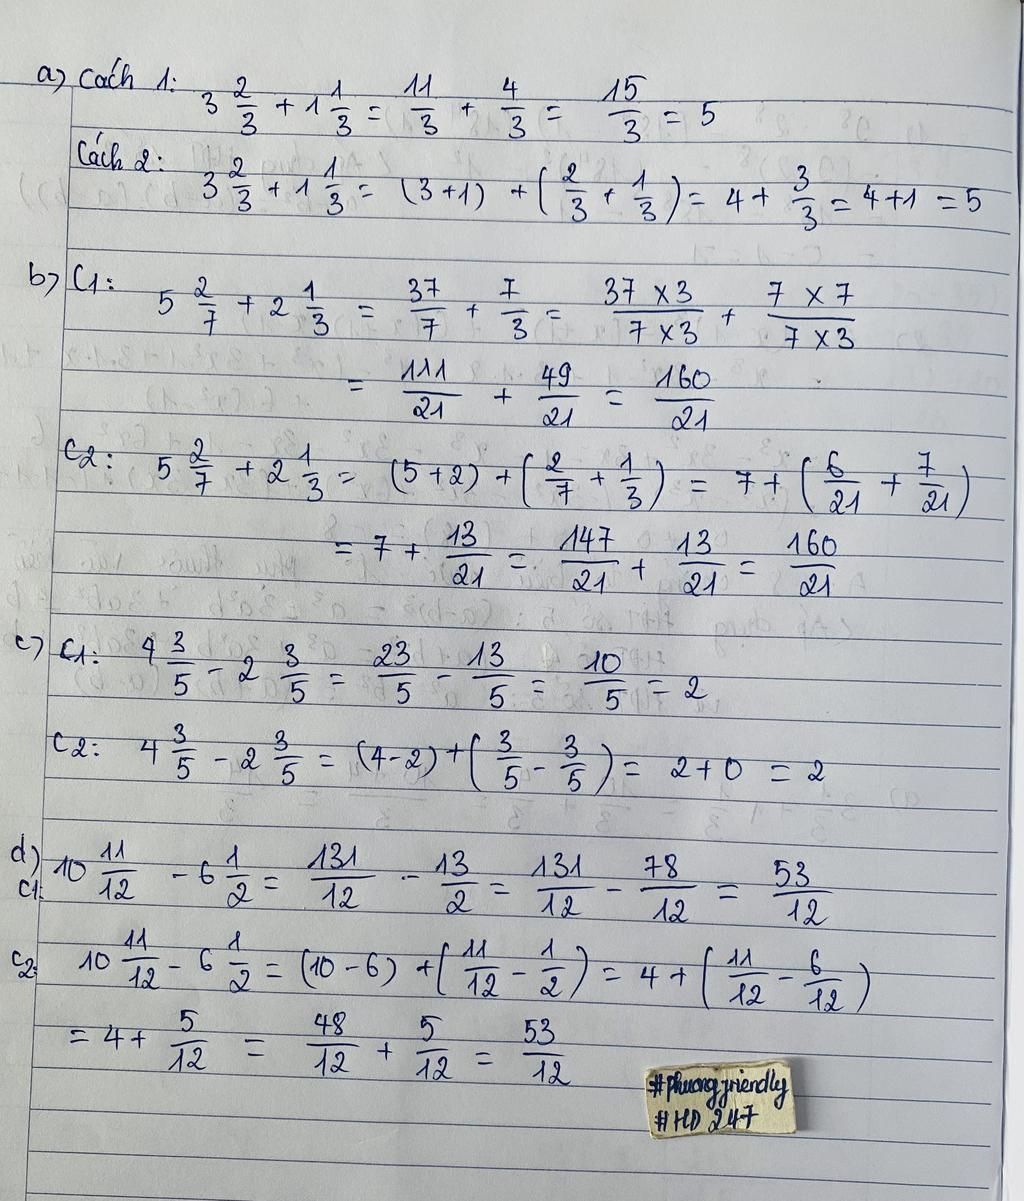 a) Cách 1:
3 2/3 + 1 1/3 = 11/3 + 4/3 = 15/3 = 5
Cách 2:
3 2/3 + 1 1/3 = (3+1) + (2/3 + 1/3) = 4 + 3/3 = 4+1 = 5
b) C1:
5 2/7 + 2 1/3 = 37/7 + 7/3 = 37 x 3/7 x 3 + 7 x 7/7 x 3
= 111/21 + 49/21 = 160/21
C2: 5 2/7 + 2 1/3 = (5+2) + (2/7 + 1/3) = 7 + (6/21 + 7/21)
= 7 + 13/21 = 147/21 + 13/21 = 160/21
c) C1: 4 3/5 - 2 3/5 = 23/5 - 13/5 = 10/5 = 2
C2: 4 3/5 - 2 3/5 = (4-2) + (3/5 - 3/5) = 2+0 = 2
d)
C1: 10 11/12 - 6 1/2 = 131/12 - 13/2 = 131/12 - 78/12 = 53/12
C2: 10 11/12 - 6 1/2 = (10-6) + (11/12 - 1/2) = 4 + (11/12 - 6/12)
= 4 + 5/12 = 48/12 + 5/12 = 53/12
#phuongfriendly
#HD 247